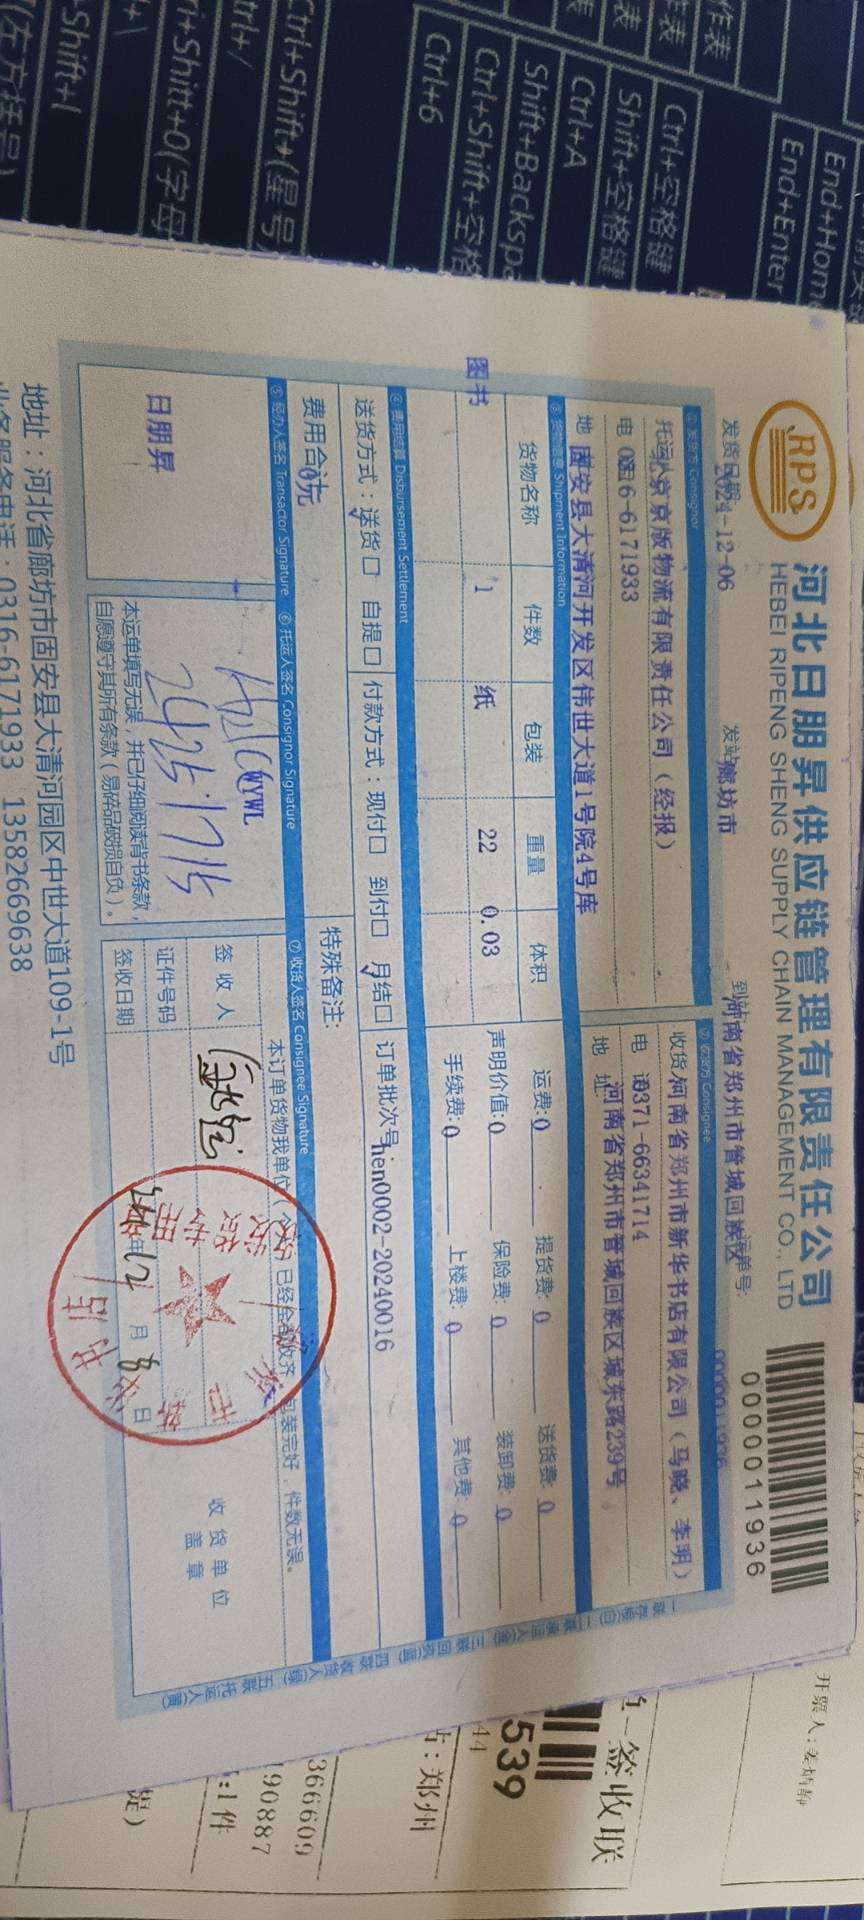 RPS
河北日朋昇供应链管理有限责任公司
HEBEI RIPENG SHENG SUPPLY CHAIN MANAGEMENT CO., LTD
0000011936
发货日期 2024-12-06 发站 廊坊市 到站 河南省郑州市管城回族区 运单号 0000011936
① 发货方 Consignor
京版物流有限责任公司(经报)
电 0316-6171933
地 固安县大清河开发区伟世大道1号院4号库
② 收货方 Consignee
收货 河南省郑州市新华书店有限公司(马晓、李明)
电 话 0371-66341714
地 址 河南省郑州市管城回族区城东路239号
③ 货物信息 Shipment Information
货物名称 件数 包装 重量 体积
图书 1 纸 22 0.03
运费:0 提货费:0 送货费:0
声明价值:0 保险费:0 装卸费:0
手续费:0 上楼费:0 其他费:0
④ 费用结算 Disbursement Settlement
送货方式:送货☐ 自提☐ 付款方式:现付☐ 到付☐ 月结☐ 订单批次号: hen0002-20240016
费用合计 0元 特殊备注:
⑤ 经办人签名 Transactor Signature
日朋昇
⑥ 托运人签名 Consignor Signature
WYWL
本运单填写无误,并已仔细阅读背书条款,
自愿遵守其所有条款(易碎品破损自负)。
⑦ 收货人签名 Consignee Signature
本订单货物我单位(个人)已经全部收齐,包装完好,件数无误。
签收人
证件号码
签收日期 年 12 月 8 日
收货单位
盖章
地址:河北省廊坊市固安县大清河园区中世大道109-1号
业务服务电话:0316-6171933 13582669638
一联存根(白) 二联承运人(金) 三联回执(蓝) 四联收货人(绿) 五联托运人(黄)
Ctrl+空格键
Shift+空格键
Ctrl+A
Shift+Backspa
Ctrl+Shift+空格
Ctrl+6
End+Home
End+Enter
Ctrl+Shift+(星号)
Ctrl+/
Ctrl+Shift+O(字母
Shift+
签收联
539
44
站:郑州
366609
90887
:1件
开票人: